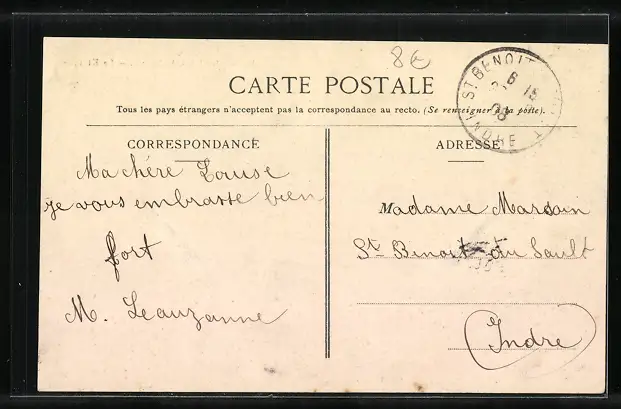 8€
CARTE POSTALE
Tous les pays étrangers n'acceptent pas la correspondance au recto. (Se renseigner à la poste).
ST BENOIT
INDRE
CORRESPONDANCE
Ma chère Louise
je vous embrasse bien
fort
M. Leauzanne
ADRESSE
Madame
St Benoit du Sault
Indre